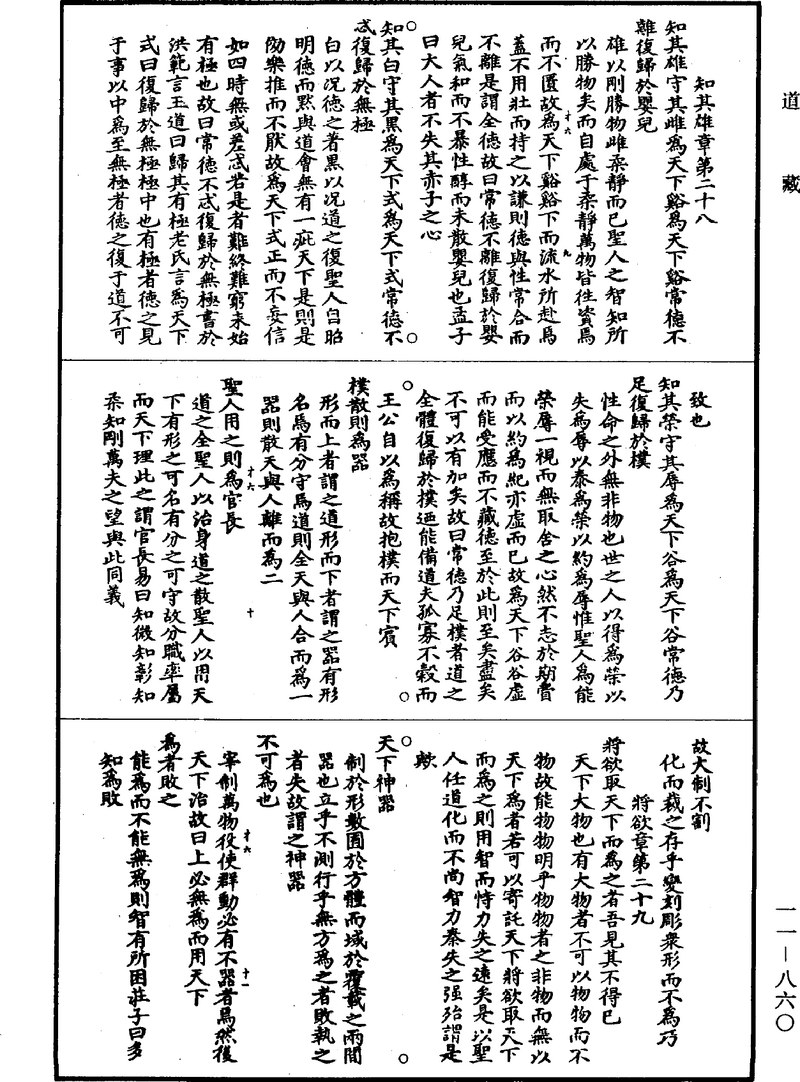 道藏
知其雄章第二十八
知其雄守其雌為天下谿為天下谿常德不
離復歸於嬰兒
雄以剛勝物雌柔靜而已聖人之智知所
以勝物矣而自處于柔靜萬物皆往資焉
而不匱故為天下谿谿下而流水所赴焉
蓋不用壯而持之以謙則德與性常合而
不離是謂全德故曰常德不離復歸於嬰
兒氣和而不暴性醇而未散嬰兒也孟子
曰大人者不失其赤子之心
知其白守其黑為天下式為天下式常德不
忒復歸於無極
白以況德之著黑以況道之復聖人自昭
明德而默與道會無有一疵天下是則是
傚樂推而不厭故為天下式正而不妄信
如四時無或差忒若是者難終難窮未始
有極也故曰常德不忒復歸於無極書於
洪範言王道曰歸其有極老氏言為天下
式曰復歸於無極極中也有極者德之見
于事以中為至無極者德之復于道不可
致也
知其榮守其辱為天下谷為天下谷常德乃
足復歸於樸
性命之外無非物也世之人以得為榮以
失為辱以泰為榮以約為辱惟聖人為能
榮辱一視而無取舍之心然不志於期費
而以約為紀亦虛而已故為天下谷谷虛
而能受應而不藏德至於此則至矣盡矣
不可以有加矣故曰常德乃足樸者道之
全體復歸於樸迺能備道夫孤寡不穀而
王公自以為稱故抱樸而天下賓
樸散則為器
形而上者謂之道形而下者謂之器有形
名焉有分守焉道則全天與人合而為一
器則散天與人離而為二
聖人用之則為官長
道之全聖人以治身道之散聖人以用天
下有形之可名有分之可守故分職率屬
而天下理此之謂官長易曰知微知彰知
柔知剛萬夫之望與此同義
故大制不割
化而裁之存乎變刻彫衆形而不為巧
將欲章第二十九
將欲取天下而為之者吾見其不得已
天下大物也有大物者不可以物物而不
物故能物物明乎物物者之非物而無以
天下為者若可以寄託天下將欲取天下
而為之則用智而恃力失之遠矣是以聖
人任道化而不尚智力秦失之强殆謂是
歟
天下神器
制於形數囿於方體而域於覆載之兩間
器也立乎不測行乎無方為之者敗執之
者失故謂之神器
不可為也
宰制萬物役使群動必有不器者焉然後
天下治故曰上必無為而用天下
為者敗之
能為而不能無為則智有所困莊子曰多
知為敗
才六
九
才六
十
才六
十一
一一—八六〇